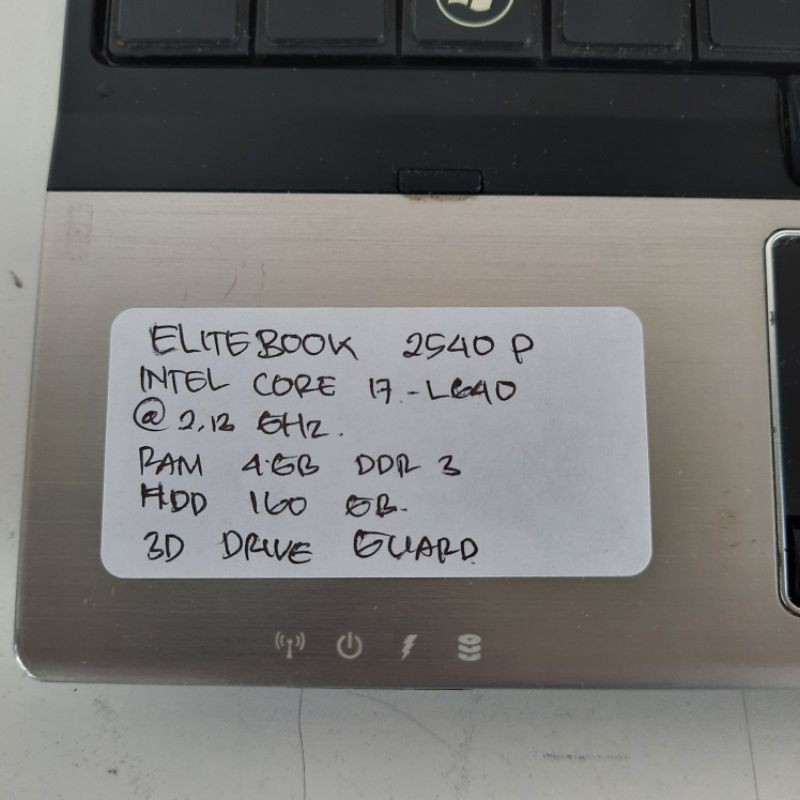 ELITEBOOK 2540 P
INTEL CORE i7-L640
@ 2,13 GHz.
RAM 4 GB DDR 3
HDD 160 GB.
3D DRIVE GUARD